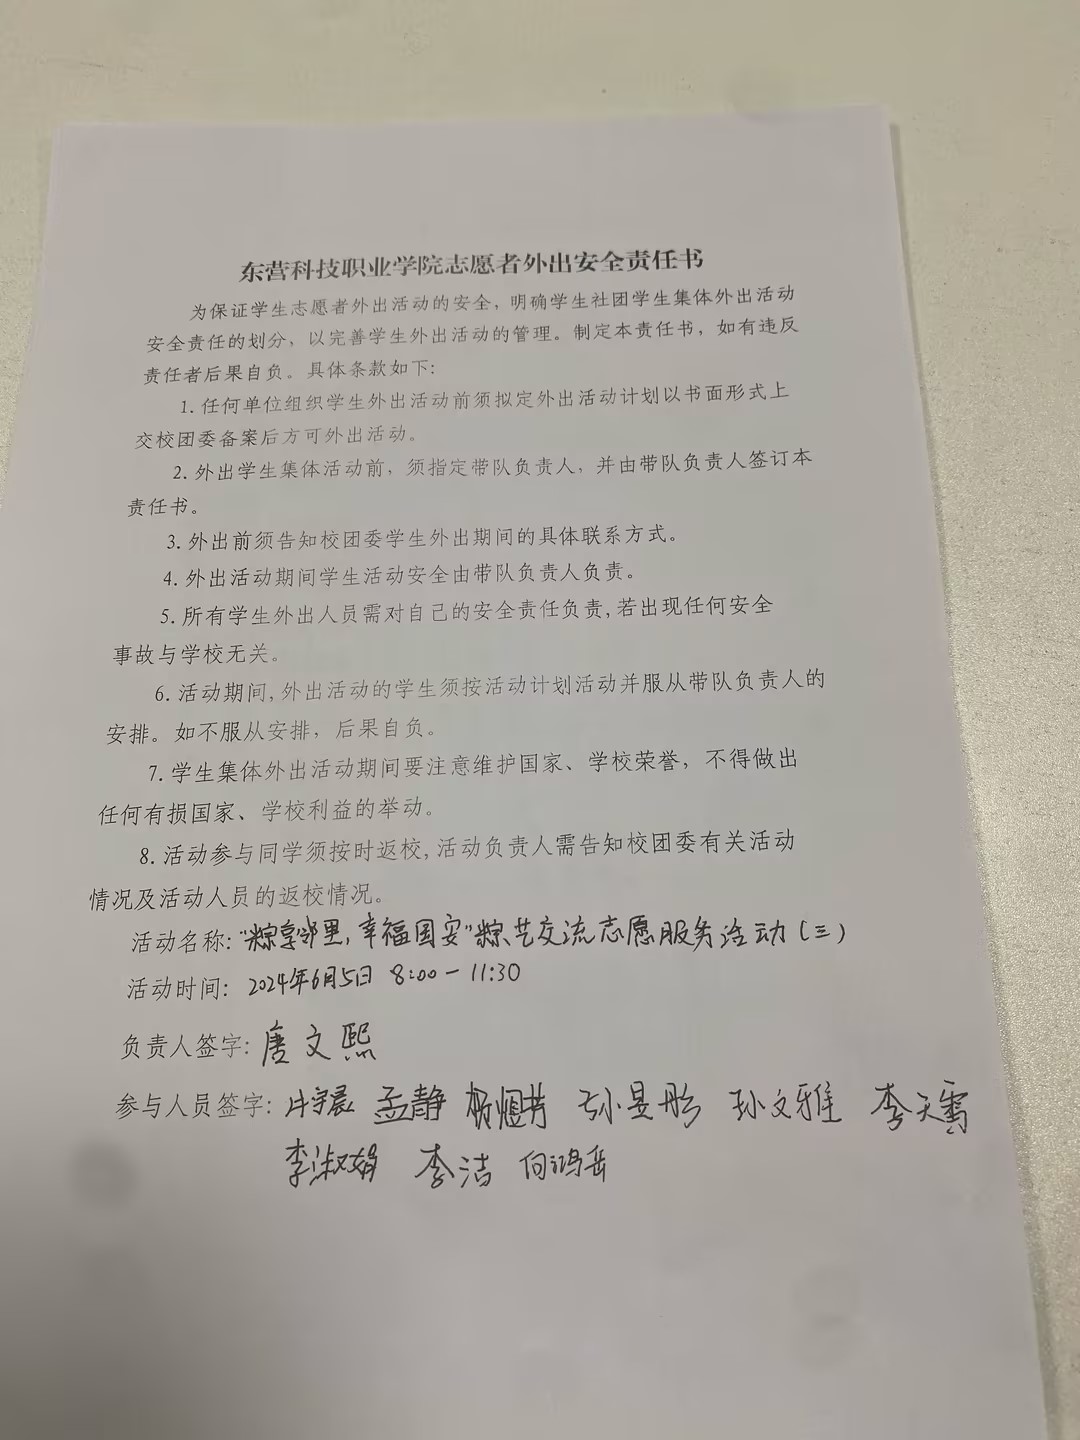 东营科技职业学院志愿者外出安全责任书
为保证学生志愿者外出活动的安全，明确学生社团学生集体外出活动
安全责任的划分，以完善学生外出活动的管理。制定本责任书，如有违反
责任者后果自负。具体条款如下：
1. 任何单位组织学生外出活动前须拟定外出活动计划以书面形式上
交校团委备案后方可外出活动。
2. 外出学生集体活动前，须指定带队负责人，并由带队负责人签订本
责任书。
3. 外出前须告知校团委学生外出期间的具体联系方式。
4. 外出活动期间学生活动安全由带队负责人负责。
5. 所有学生外出人员需对自己的安全责任负责，若出现任何安全
事故与学校无关。
6. 活动期间，外出活动的学生须按活动计划活动并服从带队负责人的
安排。如不服从安排，后果自负。
7. 学生集体外出活动期间要注意维护国家、学校荣誉，不得做出
任何有损国家、学校利益的举动。
8. 活动参与同学须按时返校，活动负责人需告知校团委有关活动
情况及活动人员的返校情况。
活动名称：“粽享邻里，幸福国安”粽艺交流志愿服务活动（三）
活动时间： 2024年6月5日 8:00－11:30
负责人签字：唐文熙
参与人员签字： 孟静 孙文雅
李淑娟 李洁